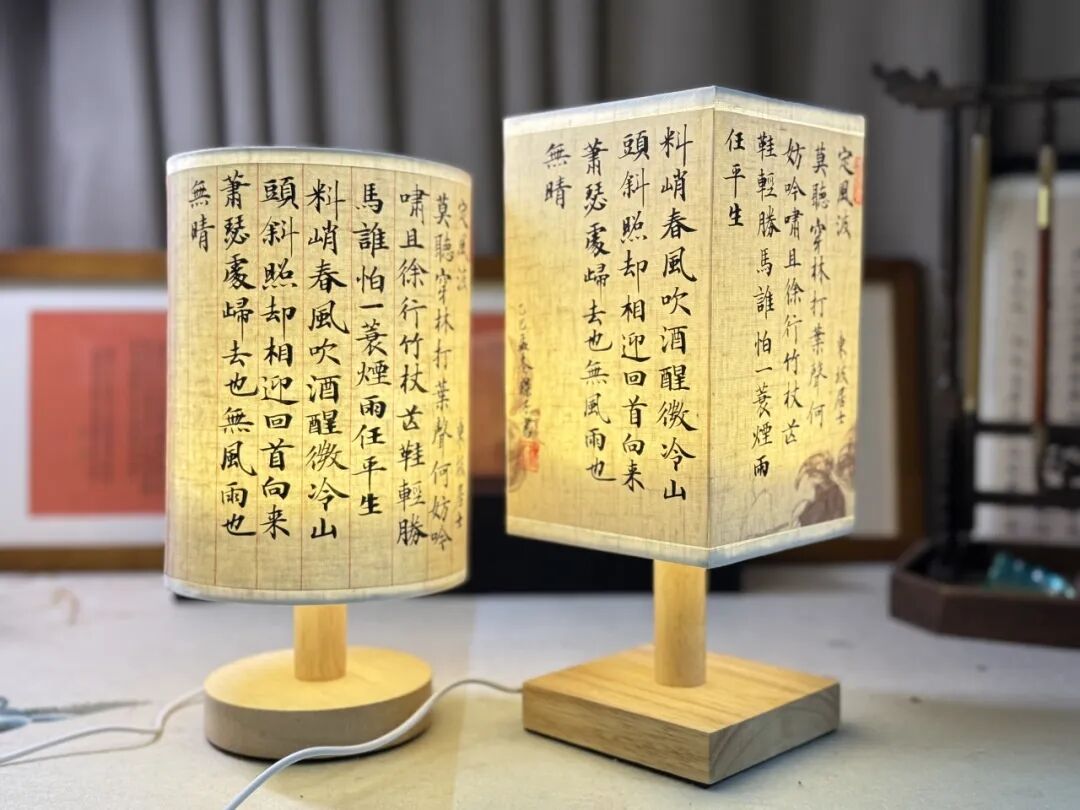 定風波 東坡居士
莫聽穿林打葉聲何妨吟
嘯且徐行竹杖芒鞋輕勝
馬誰怕一蓑煙雨任平生
料峭春風吹酒醒微冷山
頭斜照却相迎回首向来
蕭瑟處歸去也無風雨也
無晴
定風波 東坡居士
莫聽穿林打葉聲何
妨吟嘯且徐行竹杖芒
鞋輕勝馬誰怕一蓑煙雨
任平生
料峭春風吹酒醒微冷山
頭斜照却相迎回首向来
蕭瑟處歸去也無風雨也
無晴
乙巳